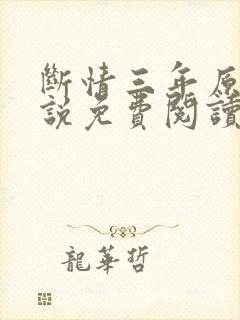 斷情三年原
說免費閱讀
龍華哲